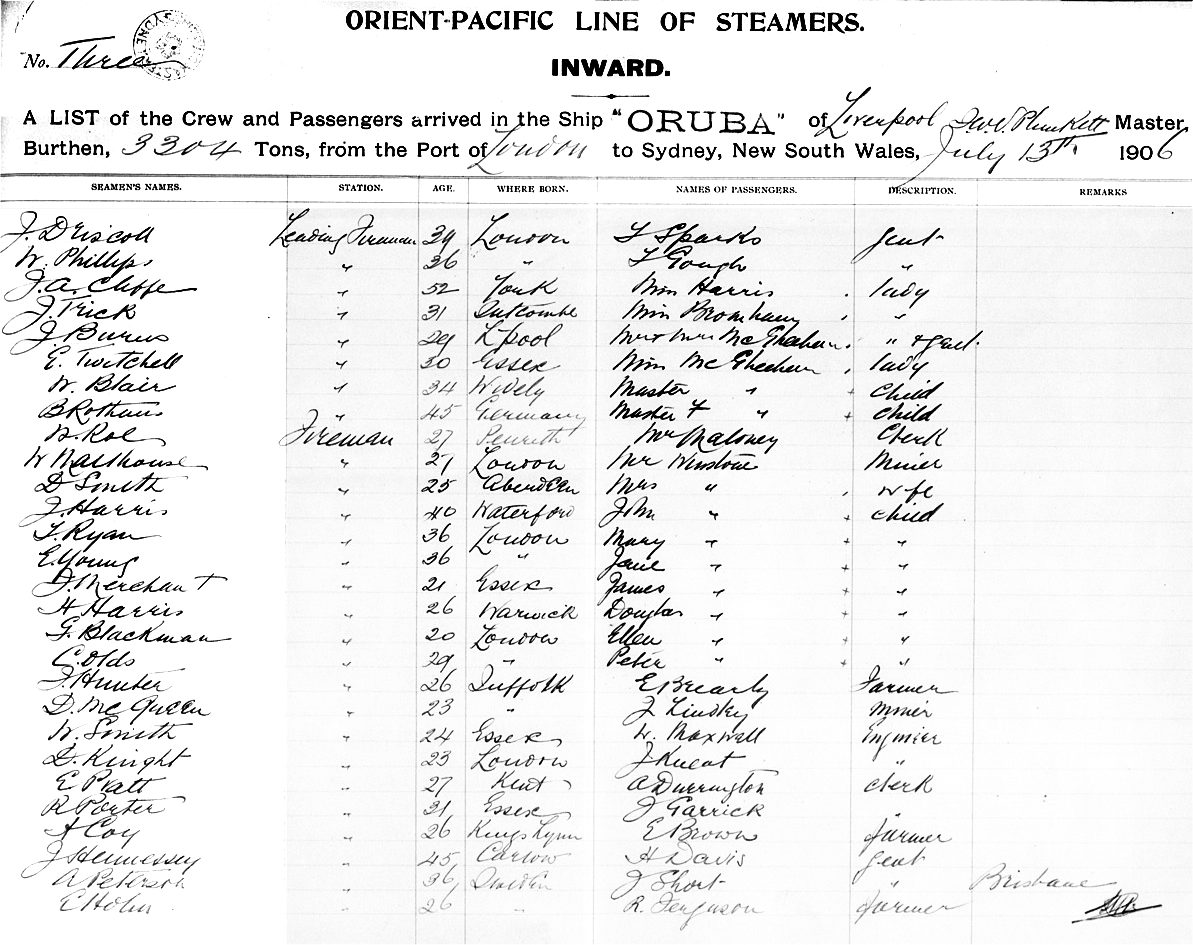 ORIENT-PACIFIC LINE OF STEAMERS.
No. Three
INWARD.
A LIST of the Crew and Passengers arrived in the Ship "ORUBA" of Liverpool Plunkett Master,
Burthen, 3304 Tons, from the Port of London to Sydney, New South Wales, July 13th. 1906
SEAMEN'S NAMES. STATION. AGE. WHERE BORN. NAMES OF PASSENGERS. DESCRIPTION. REMARKS
J. Driscoll Leading Fireman 39 London T Sparks gent
W. Phillips " 36 " T Gough "
J. A. " 52 York Miss Harris lady
J. Trick " 31 Miss Bromham "
J Burns " 29 L'pool Mr & Mrs McGheehan " & gent.
E. Twitchell " 30 Essex Miss McGheehan lady
W. Blair " 34 Widely Master " Child
B Rothaus " 45 Germany Master F " Child
W. Roe Fireman 27 Penrith Mr Maloney Clerk
W Malthouse " 27 London Mr Winstone Miner
D Smith " 25 Aberdeen Mrs " wife
J. Harris " 40 Waterford John " child
T. Ryan " 36 London Mary " "
E. Young " 36 " Jane " "
J. Merchant " 21 Essex James " "
H Harris " 26 Warwick Douglas " "
G. Blackman " 20 London Ellen " "
C. Olds " 29 " Peter " "
J. Hunter " 26 Suffolk E Brearly Farmer
D. McQueen " 23 " J Lindsey Miner
W. Smith " 24 Essex W. Maxwell Enginier
D. Knight " 23 London J "
E Pratt " 27 Kent A Durrington Clerk
R Porter " 31 Essex J Garrick "
A Coy " 26 Kings Lynn E Brown farmer
J Hennessey " 45 Carlow H Davis gent
A Peterson " 36 Sweden J Short " Brisbane
E Holm " 26 " R. Ferguson farmer